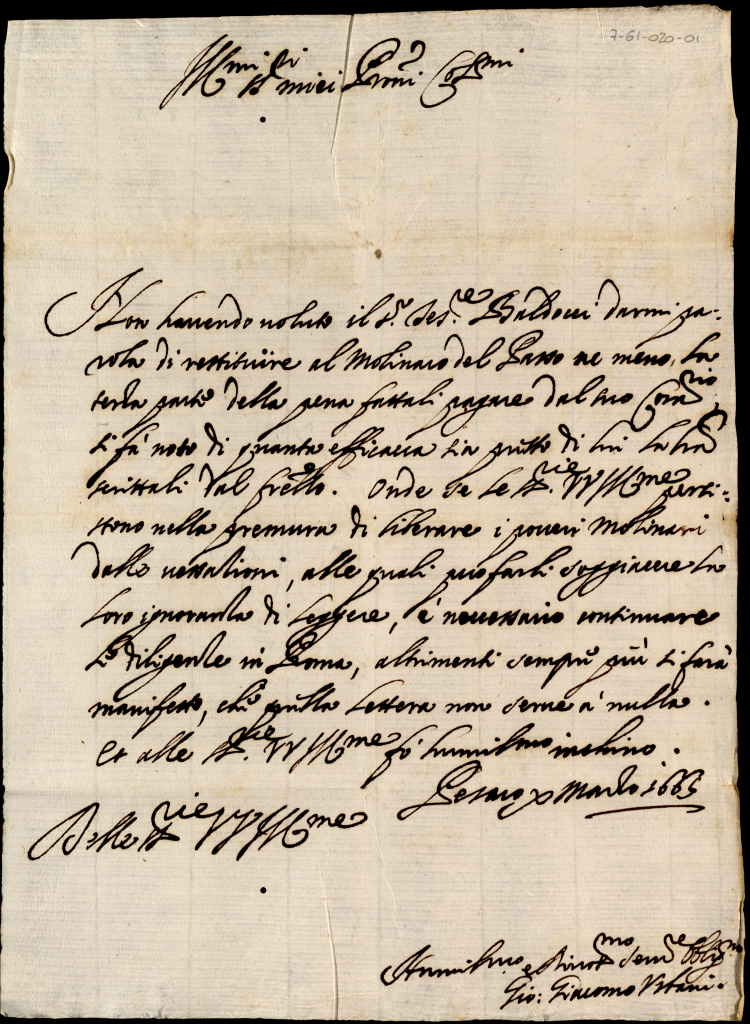 7-61-020-01
Ill.mi SS.ri miei Pron.i Coll.mi
Non havendo voluto il S.r Ses.re Baldocci darmi pa-
rola di restituire al Molinaro del Passo ne meno la
terza parte della pena fattali pagare dal suo Com.rio
si fà noto di quanta efficacia sia presso di lui la lra
scrittali dal frello. Onde se le SS.rie VV Ill.me persi-
stono nella premura di liberare i poveri Molinari
dalle vessationi, alle quali puo farli soggiacere la
loro ignoranza di leggere, è necessario continuare
le diligenze in Roma, altrimenti sempre più si farà
manifesto, che quella lettera non serve à nulla.
Et alle SS.rie VV Ill.me fò humil.mo inchino.
Pesaro x Marzo 1663
Delle SS.rie VV Ill.me
Humil.mo e Divot.mo Serv.re Obblig.mo
Gio: Giacomo Vrbani.